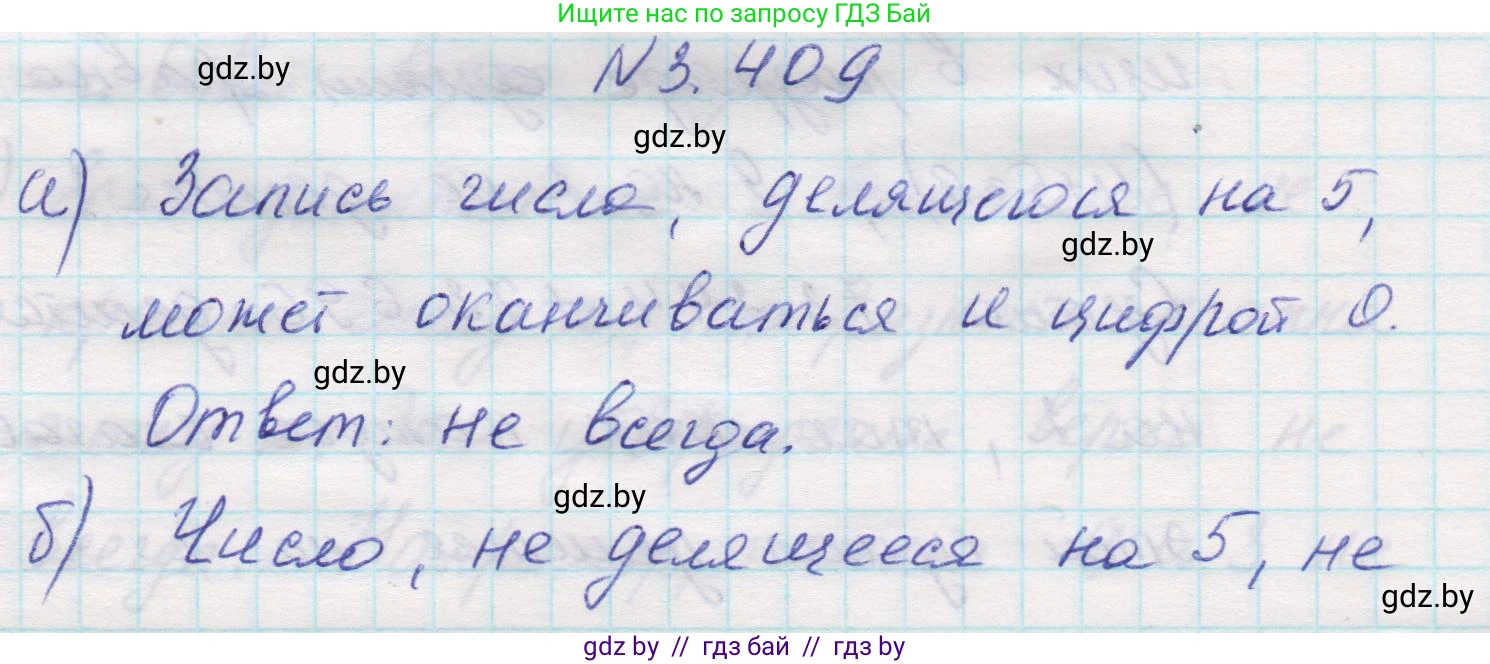 Ищите нас по запросу ГДЗ Бай
gdz.by
N 3. 409
gdz.by
а) Запись числа, делящегося на 5,
gdz.by
может оканчиваться и цифрой 0.
gdz.by
Ответ: не всегда.
gdz.by
б) Число, не делящееся на 5, не
gdz.by
gdz by // гдз бай // гдз by